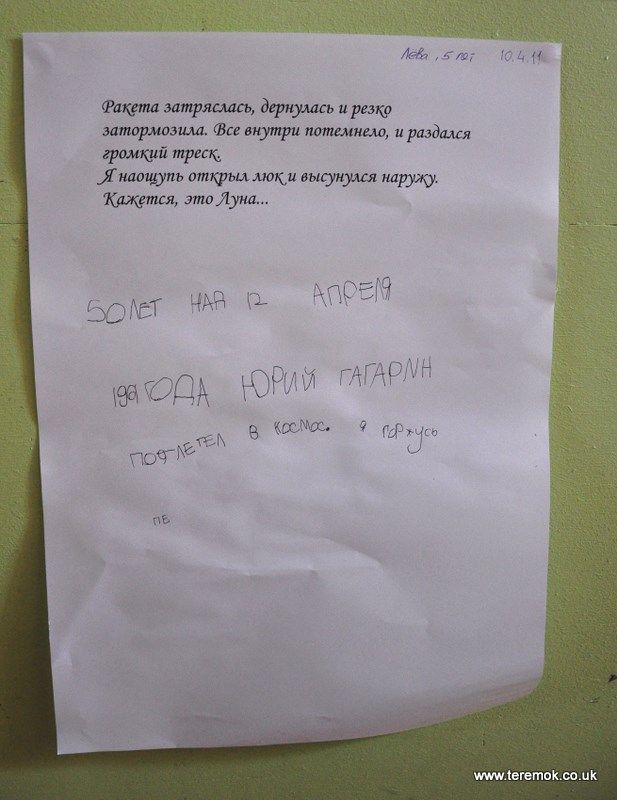 Лёва, 5 лет 10.4.11
Ракета затряслась, дернулась и резко
затормозила. Все внутри потемнело, и раздался
громкий треск.
Я наощупь открыл люк и высунулся наружу.
Кажется, это Луна...
50 ЛЕТ НАД 12 АПРЕЛЯ
1961 ГОДА ЮРИЙ ГАГАРИН
ПОЛЕТЕЛ В КОСМОС. Я ГОРЖУСЬ
ПЕ
www.teremok.co.uk